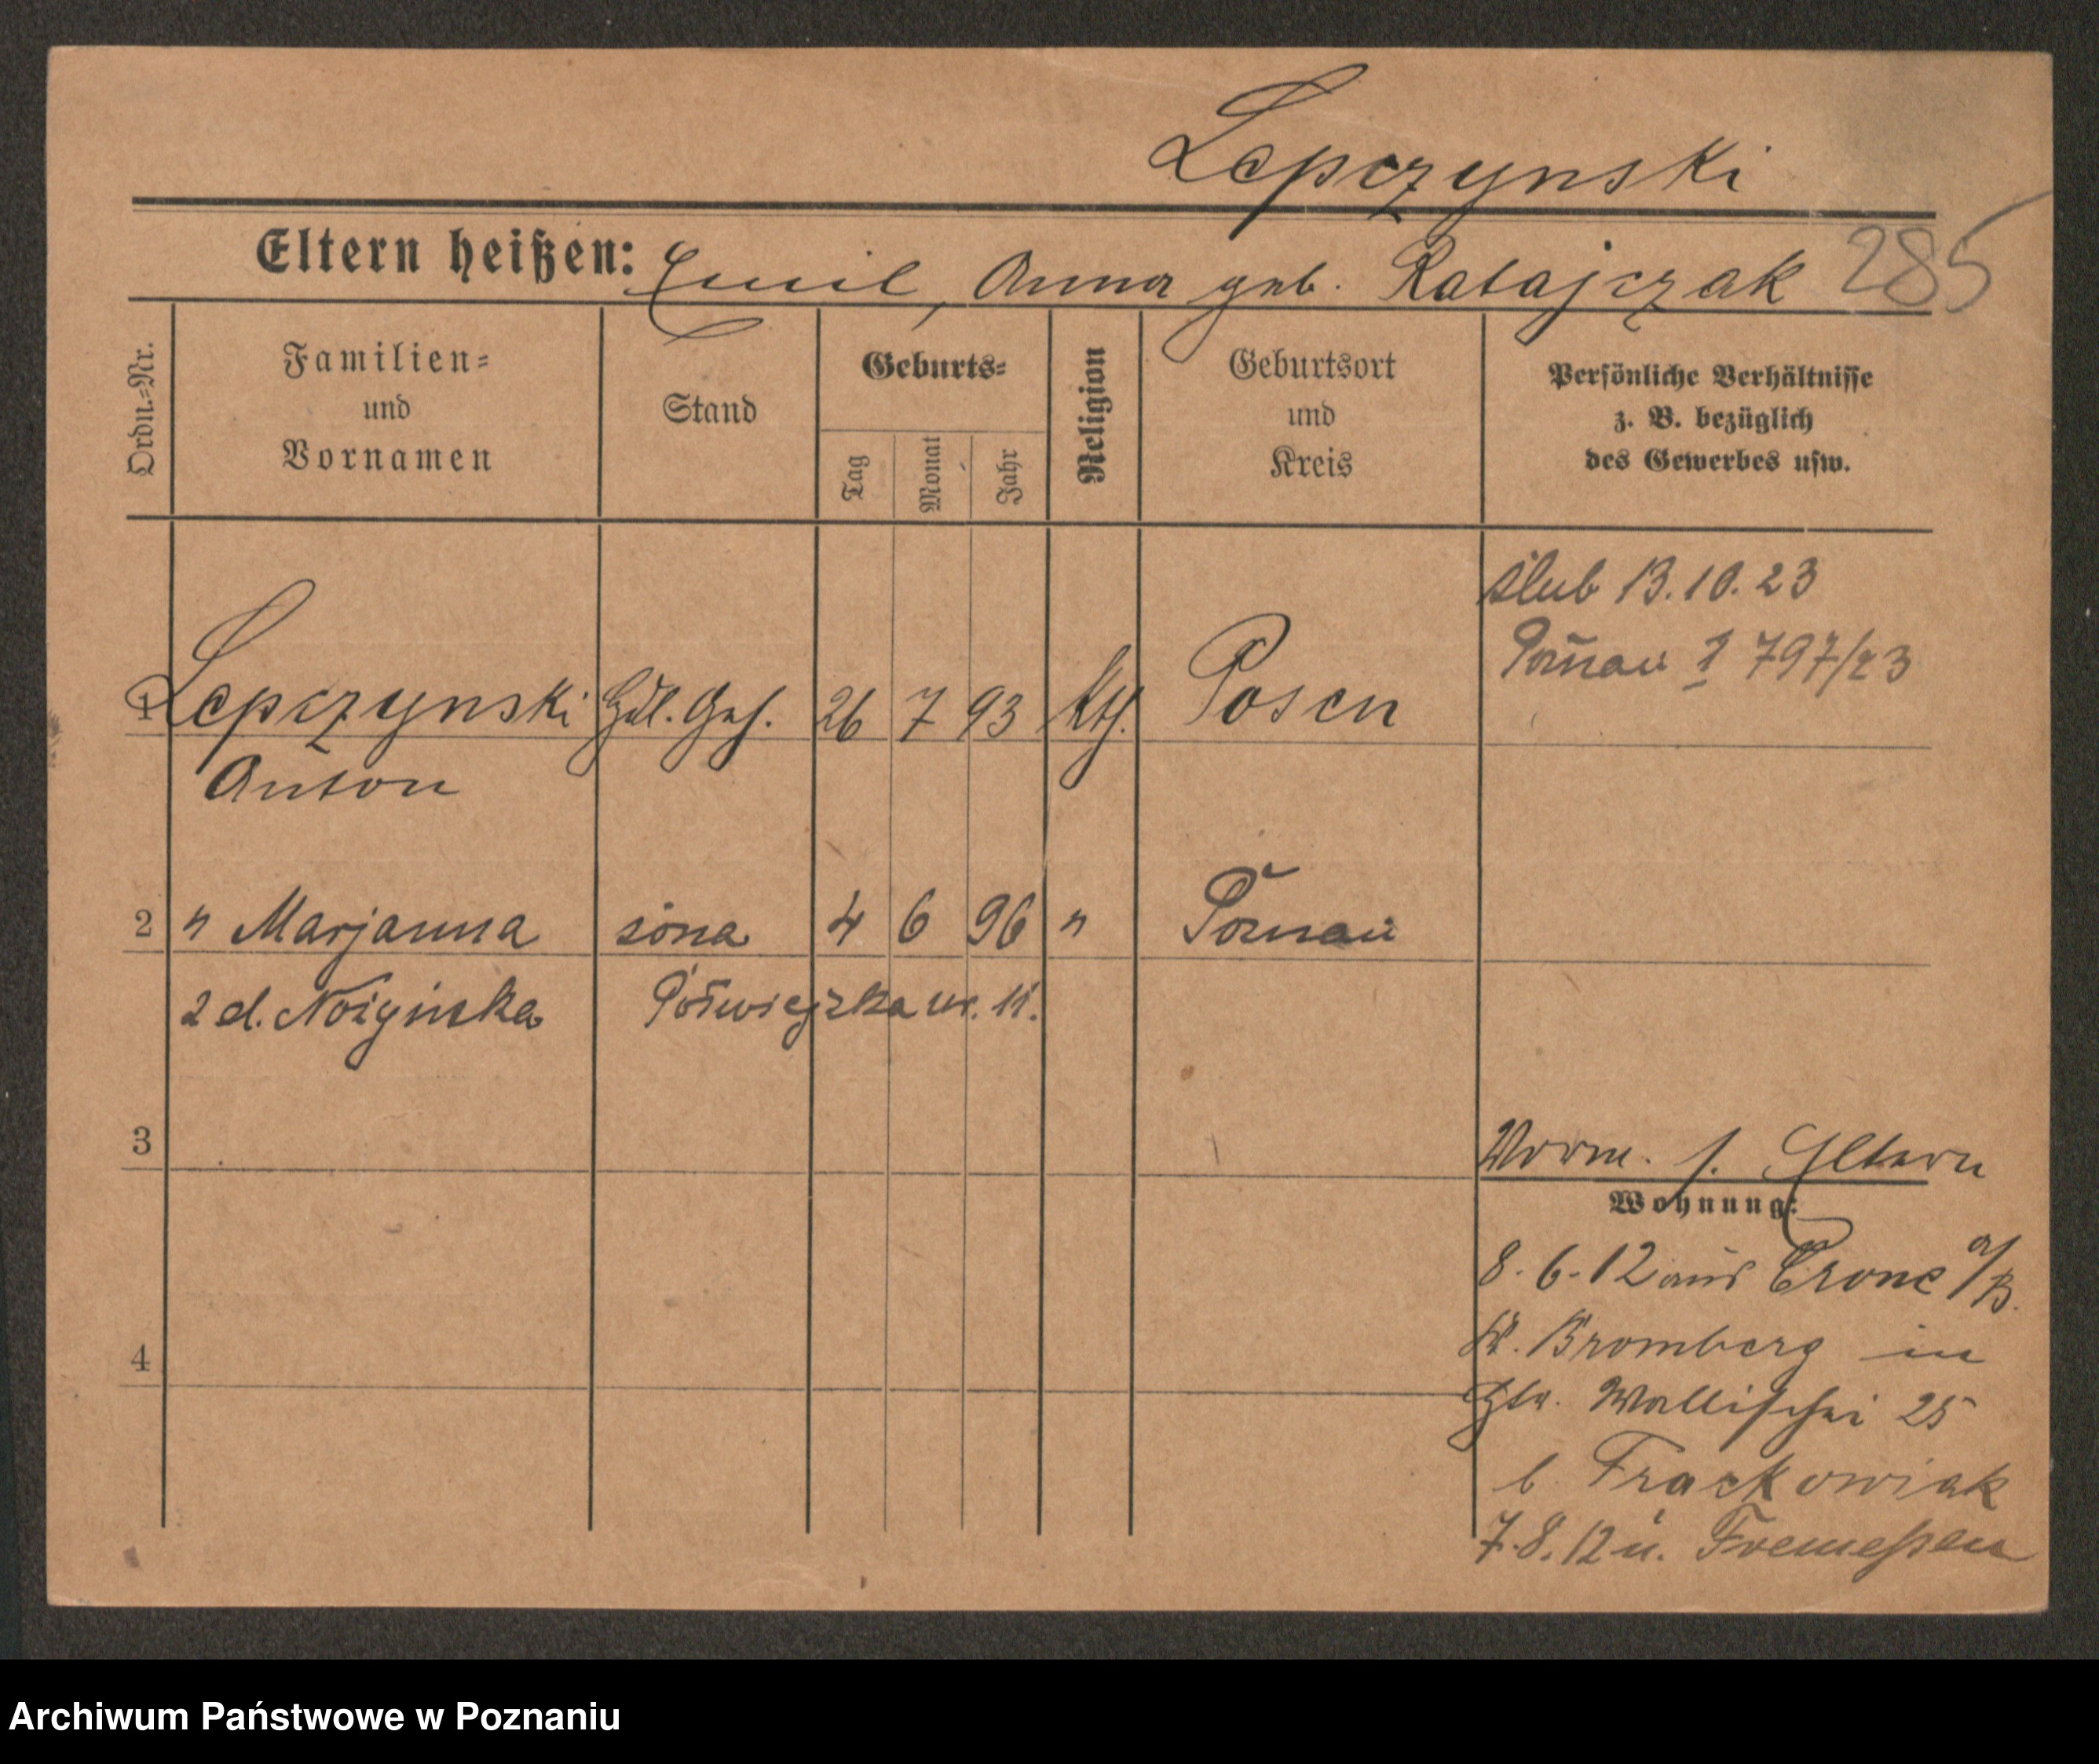 Lepczynski
Eltern heißen: Emil, Anna geb. Ratajczak 285
Ordn.-Nr.
Familien-
und
Vornamen
Stand
Geburts-
Tag
Monat
Jahr
Religion
Geburtsort
und
Kreis
Persönliche Verhältnisse
z. B. bezüglich
des Gewerbes usw.
ślub 13.10.23
Poznań I 797/23
1 Lepczynski Hdl. Geh. 26 7 93 kth. Posen
Anton
2 " Marjanna żona 4 6 96 " Poznań
z d. Półwiejska nr. 11.
3
Vorm. s. Eltern
Wohnung:
8.6.12 aus Crone a/B.
Kr. Bromberg in
4
Wallischei 25
b. Frackowiak
7.8.12 n. Tremessen
Archiwum Państwowe w Poznaniu